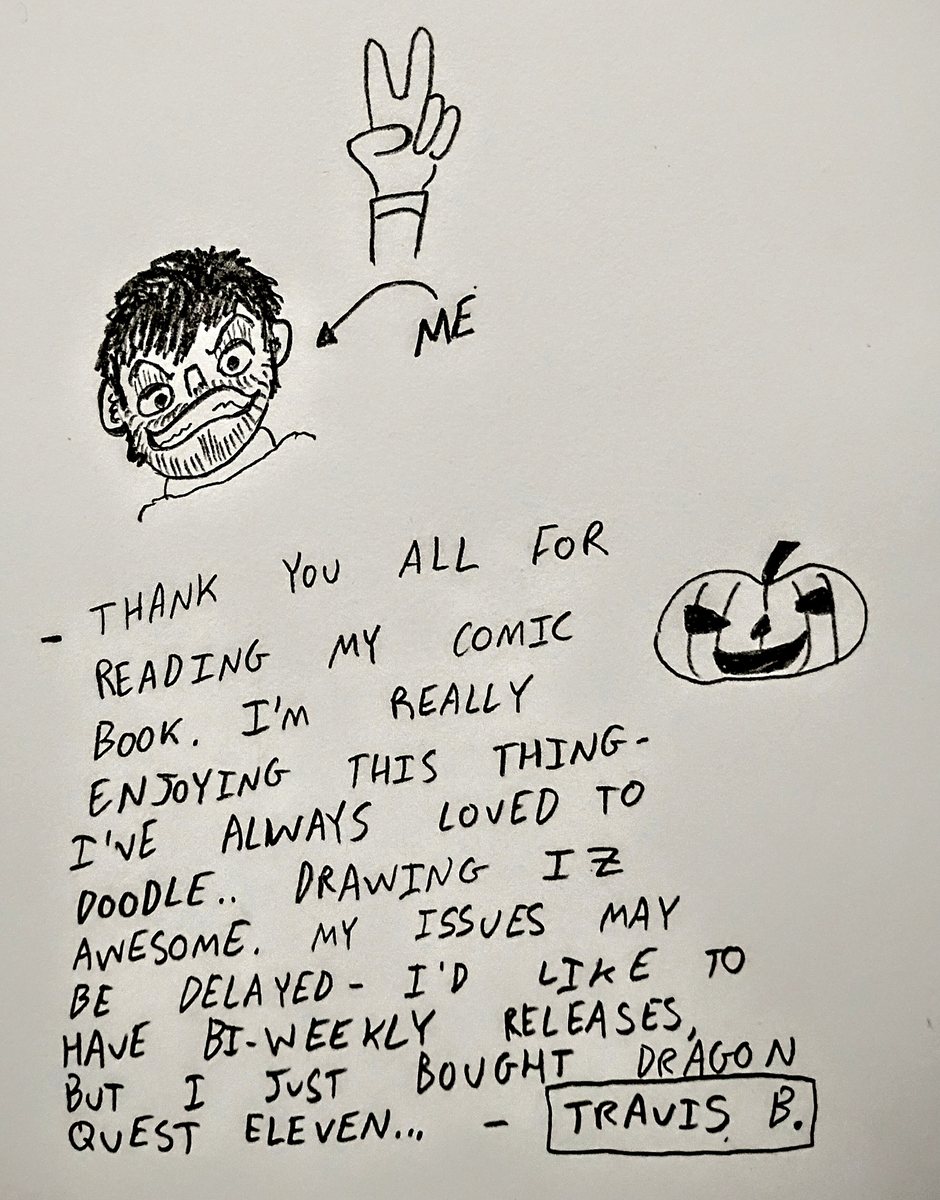 ME
- THANK YOU ALL FOR
READING MY COMIC
BOOK. I'M REALLY
ENJOYING THIS THING-
I'VE ALWAYS LOVED TO
DOODLE.. DRAWING IZ
AWESOME. MY ISSUES MAY
BE DELAYED- I'D LIKE TO
HAVE BI-WEEKLY RELEASES,
BUT I JUST BOUGHT DRAGON
QUEST ELEVEN... - TRAVIS B.